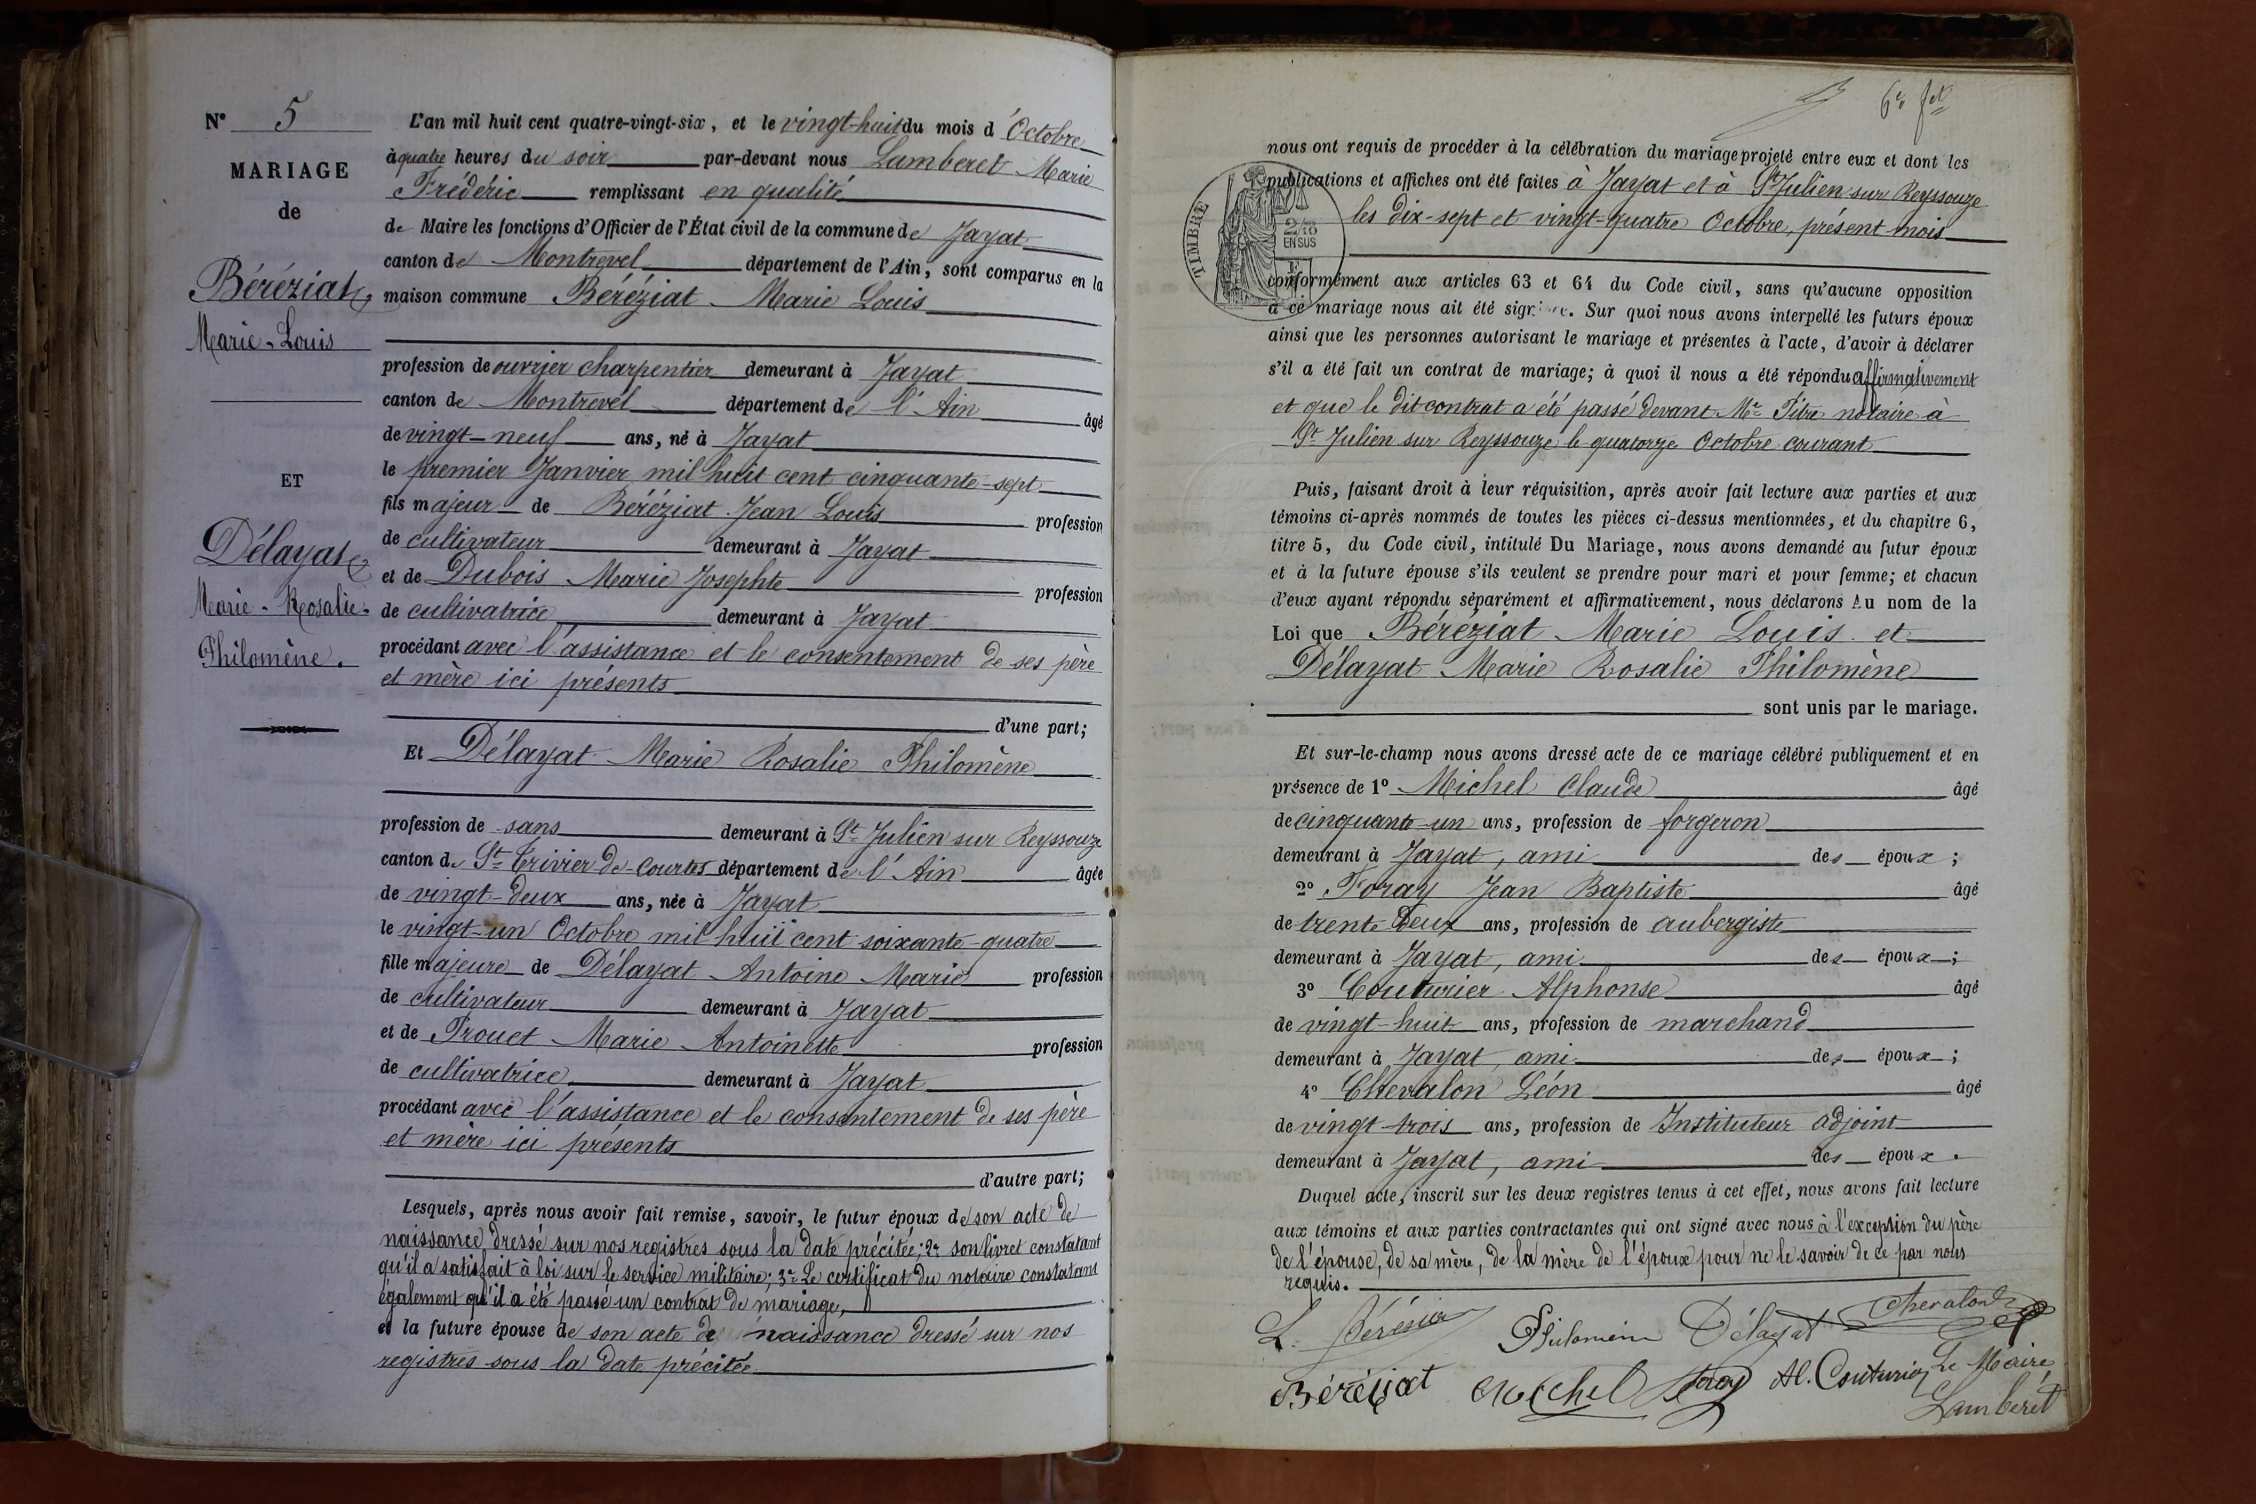 N° 5
MARIAGE
de
Béréziat
Marie-Louis
ET
Délayat
Marie-Rosalie-
Philomène.
L'an mil huit cent quatre-vingt-six, et le vingt-huit du mois d'Octobre
à quatre heures du soir par-devant nous Lamberet Marie
Frédéric remplissant en qualité
de Maire les fonctions d'Officier de l'État civil de la commune de Jayat
canton de Montrevel département de l'Ain, sont comparus en la
maison commune Béréziat Marie Louis
profession de ouvrier charpentier demeurant à Jayat
canton de Montrevel département de l'Ain âgé
de vingt-neuf ans, né à Jayat
le premier Janvier mil huit cent cinquante-sept
fils majeur de Béréziat Jean Louis profession
de cultivateur demeurant à Jayat
et de Dubois Marie Josephte profession
de cultivatrice demeurant à Jayat
procédant avec l'assistance et le consentement de ses père
et mère ici présents
d'une part;
Et Délayat Marie Rosalie Philomène
profession de sans demeurant à St Julien sur Reyssouze
canton de St Trivier de Courtes département de l'Ain âgée
de vingt-deux ans, née à Jayat
le vingt-un Octobre mil huit cent soixante-quatre
fille majeure de Délayat Antoine Marie profession
de cultivateur demeurant à Jayat
et de Prouet Marie Antoinette profession
de cultivatrice demeurant à Jayat
procédant avec l'assistance et le consentement de ses père
et mère ici présents
d'autre part;
Lesquels, après nous avoir fait remise, savoir, le futur époux de son acte de
naissance dressé sur nos registres sous la date précitée; 2° son livret constatant
qu'il a satisfait à loi sur le service militaire; 3° Le certificat du notaire constatant
également qu'il a été passé un contrat de mariage,
et la future épouse de son acte de naissance dressé sur nos
registres sous la date précitée
6e fet
nous ont requis de procéder à la célébration du mariage projeté entre eux et dont les
publications et affiches ont été faites à Jayat et à St Julien sur Reyssouze
les dix-sept et vingt-quatre Octobre, présent mois
TIMBRE
2/10
EN SUS
conformément aux articles 63 et 64 du Code civil, sans qu'aucune opposition
à ce mariage nous ait été signifiée. Sur quoi nous avons interpellé les futurs époux
ainsi que les personnes autorisant le mariage et présentes à l'acte, d'avoir à déclarer
s'il a été fait un contrat de mariage; à quoi il nous a été répondu affirmativement
et que le dit contrat a été passé devant Me Pitre notaire à
St Julien sur Reyssouze le quatorze Octobre courant
Puis, faisant droit à leur réquisition, après avoir fait lecture aux parties et aux
témoins ci-après nommés de toutes les pièces ci-dessus mentionnées, et du chapitre 6,
titre 5, du Code civil, intitulé Du Mariage, nous avons demandé au futur époux
et à la future épouse s'ils veulent se prendre pour mari et pour femme; et chacun
d'eux ayant répondu séparément et affirmativement, nous déclarons Au nom de la
Loi que Béréziat Marie Louis et
Délayat Marie Rosalie Philomène
sont unis par le mariage.
Et sur-le-champ nous avons dressé acte de ce mariage célébré publiquement et en
présence de 1° Michel Claude âgé
de cinquante-un ans, profession de forgeron
demeurant à Jayat, ami des époux;
2° Foray Jean Baptiste âgé
de trente deux ans, profession de aubergiste
demeurant à Jayat, ami des époux;
3° Couturier Alphonse âgé
de vingt-huit ans, profession de marchand
demeurant à Jayat, ami des époux;
4° Chevalon Léon âgé
de vingt-trois ans, profession de Instituteur adjoint
demeurant à Jayat, ami des époux.
Duquel acte, inscrit sur les deux registres tenus à cet effet, nous avons fait lecture
aux témoins et aux parties contractantes qui ont signé avec nous à l'exception du père
de l'épouse, de sa mère, de la mère de l'époux pour ne le savoir de ce par nous
requis.
L. Béréziat Philomène Délayat Chevalon
Béréziat Michel Foray Al. Couturier Le Maire
Lamberet